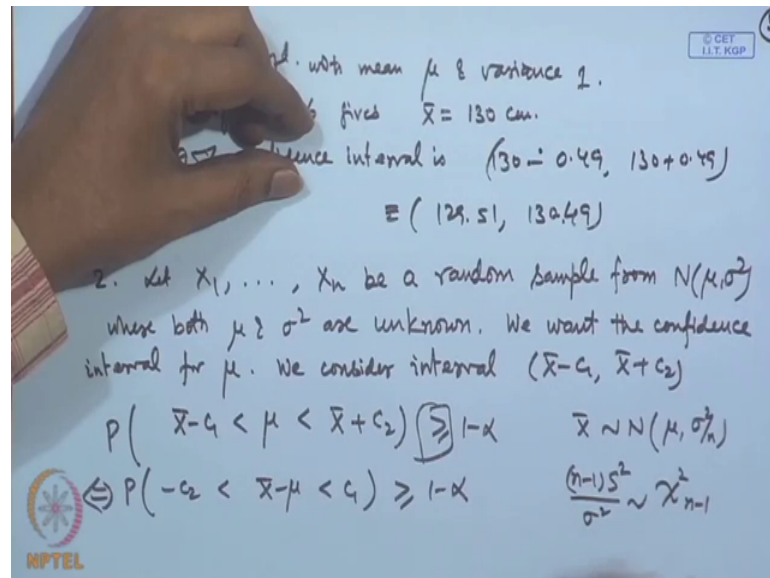 © CET
I.I.T. KGP
with mean μ & variance 1.
gives X̄ = 130 cm.
interval is (130 - 0.49, 130 + 0.49)
≡ (129.51, 130.49)
2. Let X₁, ..., Xₙ be a random sample from N(μ, σ²)
where both μ & σ² are unknown. We want the confidence
interval for μ. We consider interval (X̄-c₁, X̄+c₂)
P( X̄-c₁ < μ < X̄+c₂) ≥ 1-α X̄ ~ N(μ, σ²/n)
⇔ P(-c₂ < X̄-μ < c₁) ≥ 1-α (n-1)S²/σ² ~ χ²ₙ₋₁
NPTEL